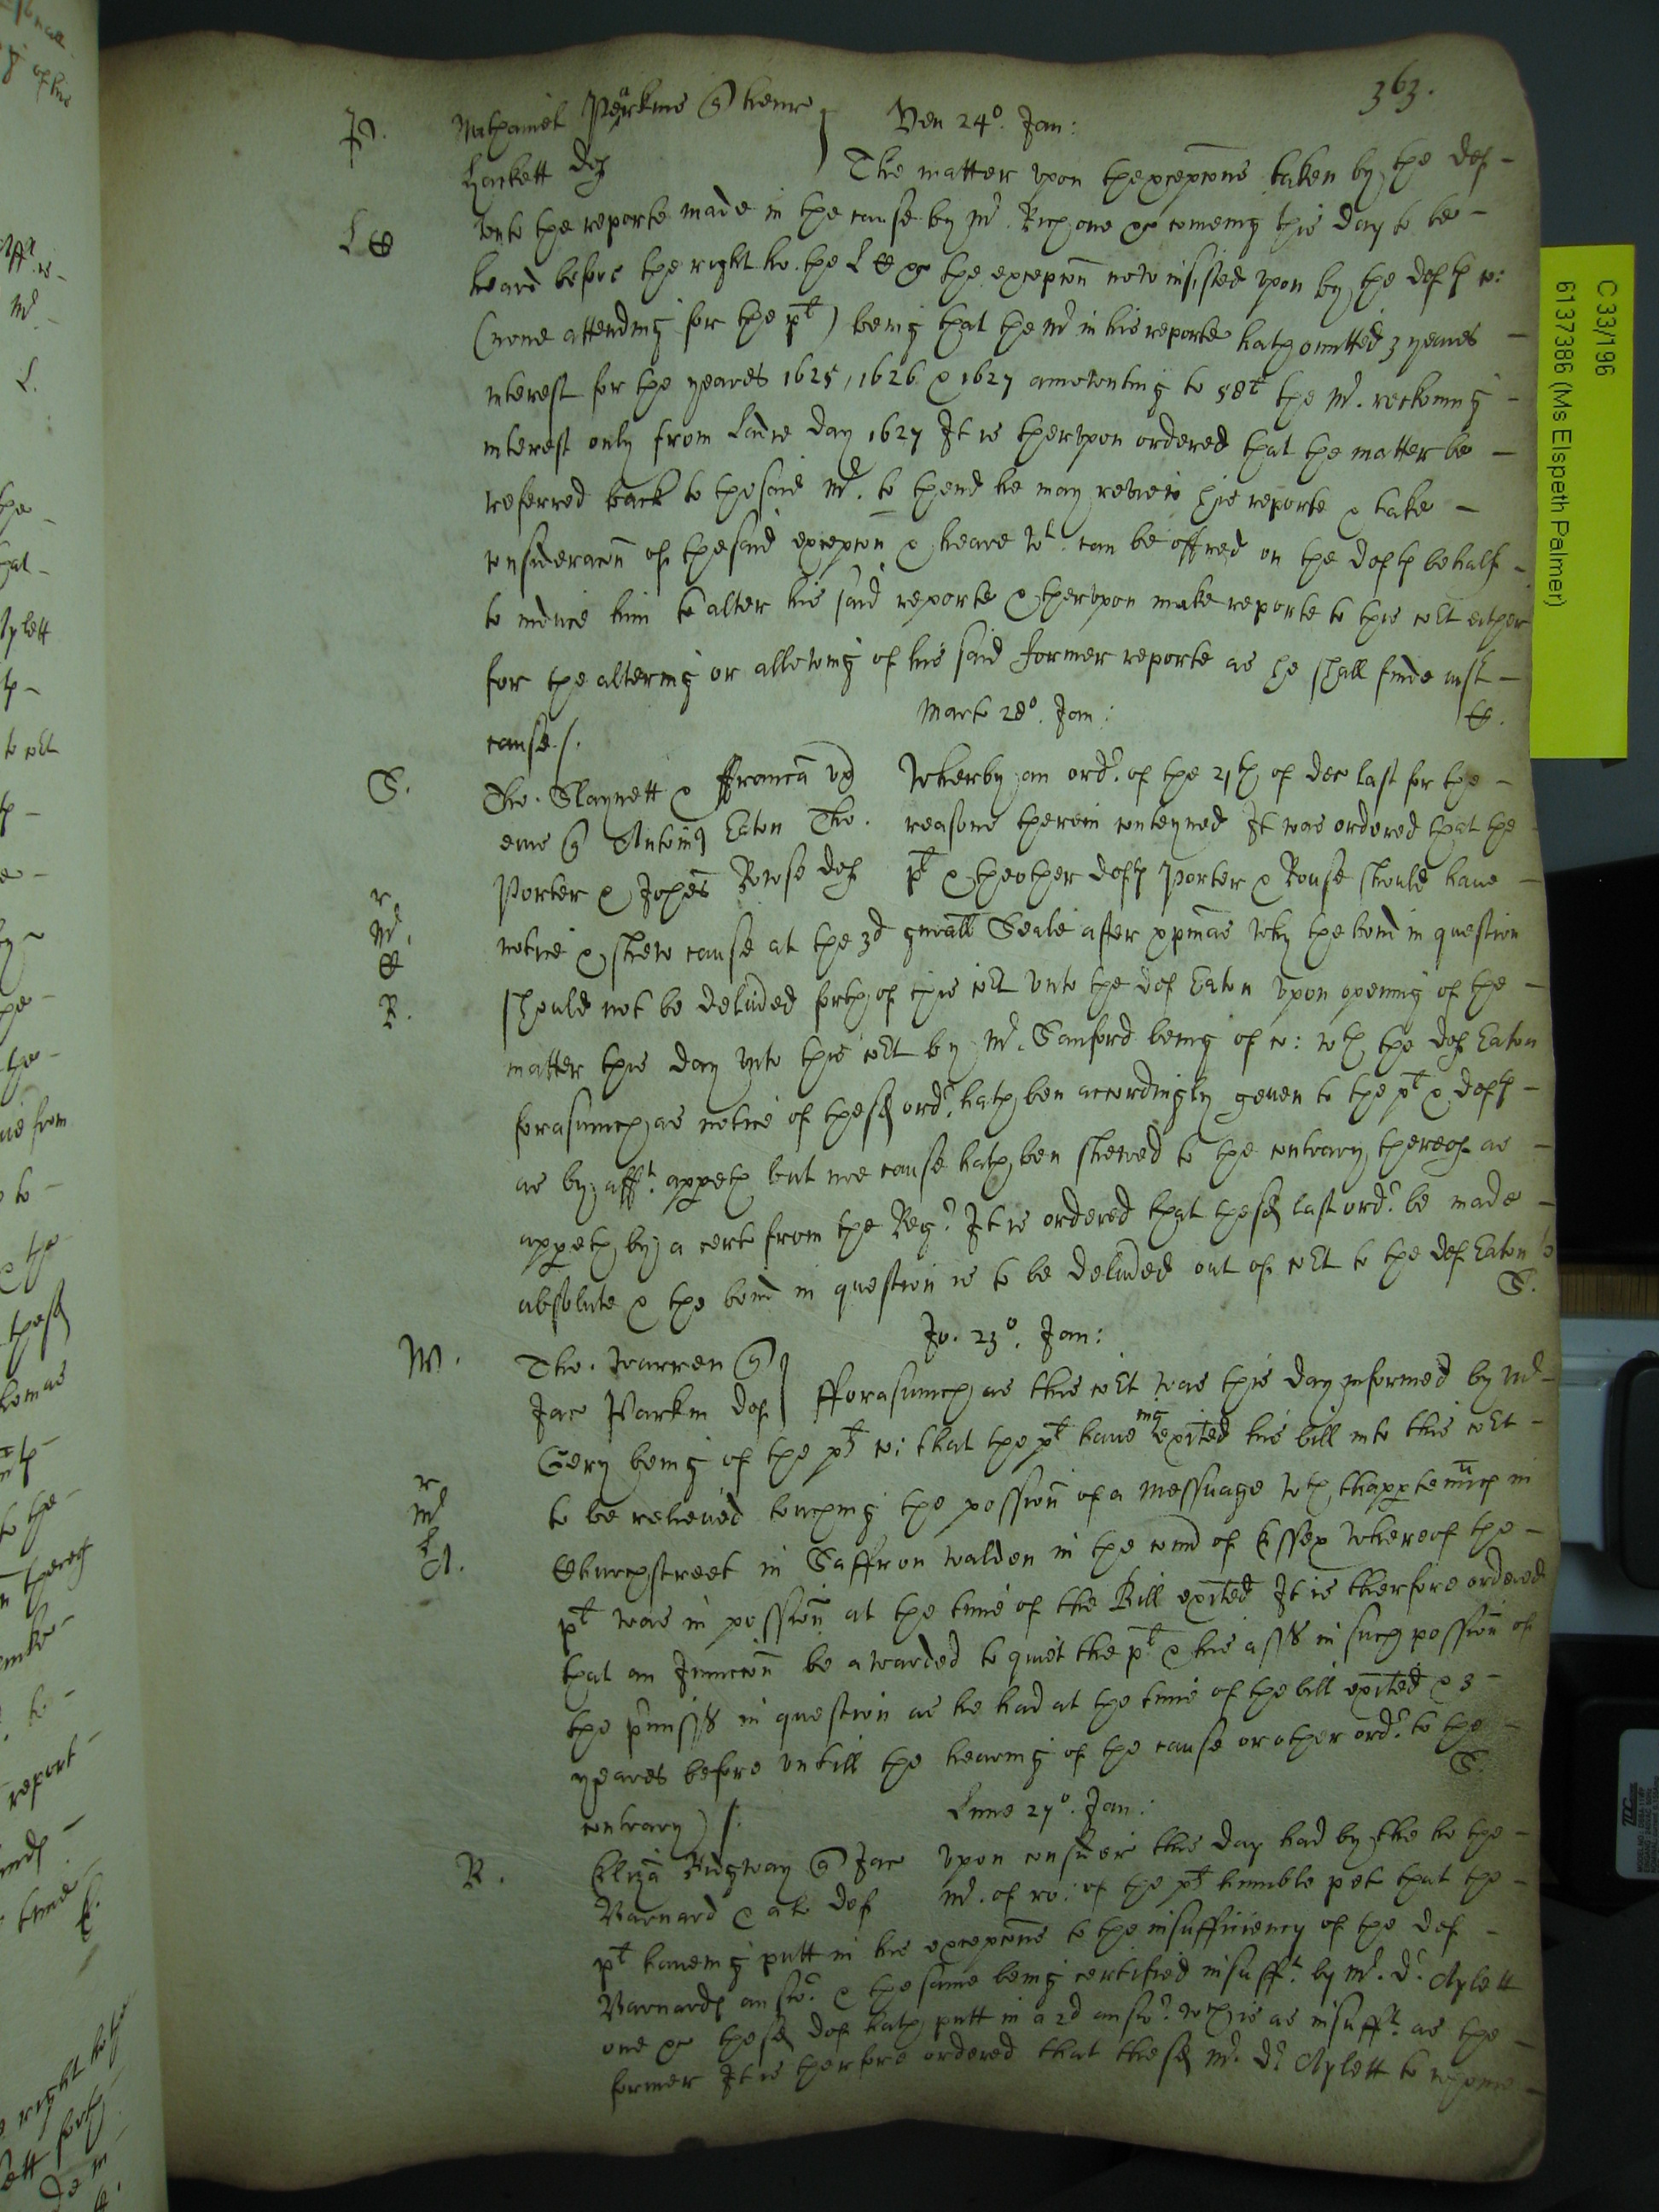 363.
P. Nathaniel Parkins qu Henr } Ven 24°. Jan:
Hackett def } The matter upon thexcepcons taken by the def
L C unto the reporte made in the cause by Mr. Rich one &c comeing this day to be
heard before the right ho. the L C & the excepcon now insisted upon by the defts co:
(none attending for the plt) being that the Mr in his reporte hath omitted 3 yeares
interest for the yeares 1625, 1626 & 1627 amounting to 58l the Mr. reckoning
interest only from Ladie day 1627 It is thervpon ordered that the matter be
referred back to the said Mr. to thend he may review his reporte & take
consideracon of the said excepcon & heare wt. can be offred on the defts behalf
to induce him to alter his said reporte & thervpon make reporte to this cort either
for the altering or allowing of his said former reporte as he shall finde iust
cause /. Mart 28°. Jan: C.
S. Tho. Slaynett & ffranca ux Wherby an ordr. of the 21th of Dec last for the
eius qu Antoniu Eaton Tho. reasons therein conteyned It was ordered that the
Porter & Johes Rowse def plt & theother defts Porter & Rouse should haue
notice & shew cause at the 3d gnrall Seale after xpmas why the bond in question
r Mr. C R. should not be deliued forth of this cort unto the def Eaton upon opening of the
matter this day unto this cort by Mr. Sanford being of co: wth the def Eaton
forasmuch as notice of the sd ordr. hath ben accordingly geuen to the plt & defts
as by afft. appeth but noe cause hath ben shewed to the contrary thereof as
appeth by a cert from the Regr. It is ordered that the sd last ordr. be made
absolute & the bond in question is to be deliued out of cort to the def Eaton
Jo. 23°. Jan: S.
W. Tho. Warren qu }
Jac Parkin def } fforasmuch as this cort was this day informed by Mr
Gery being of the plts co: that the plt haue ing exited his bill into this cort
to be relieued touching the possion of a Messuage wth thappertenncs in
r Mr Churchstreet in Saffron Walden in the com of Essex Whereof the
plt was in possion at the time of the Bill exited It is therfore ordered
that an Iniuncon be awarded to quiet the plt & his asss in such possion of
the pmisss in question as he had at the time of the bill exited & 3
yeares before untill the hearing of the cause or other ordr. to the
contrary /. Lune 27°. Jan: S.
R. Eliza Ridgway qu Jac Upon consider this day had by the ho the
Barnard & al def Mr. of ro: of the plts humble pet that the
plt haueing putt in his excepcons to the insufficiency of the def
Barnards answr. & the same being certified insufft. by Mr. Dr. Aylett
one &c the sd def hath putt in a 2d answr. wch is as insufft. as the
former It is therfore ordered that the sd Mr. Dr Aylett to whome
C 33/196
6137386 (Ms Elspeth Palmer)